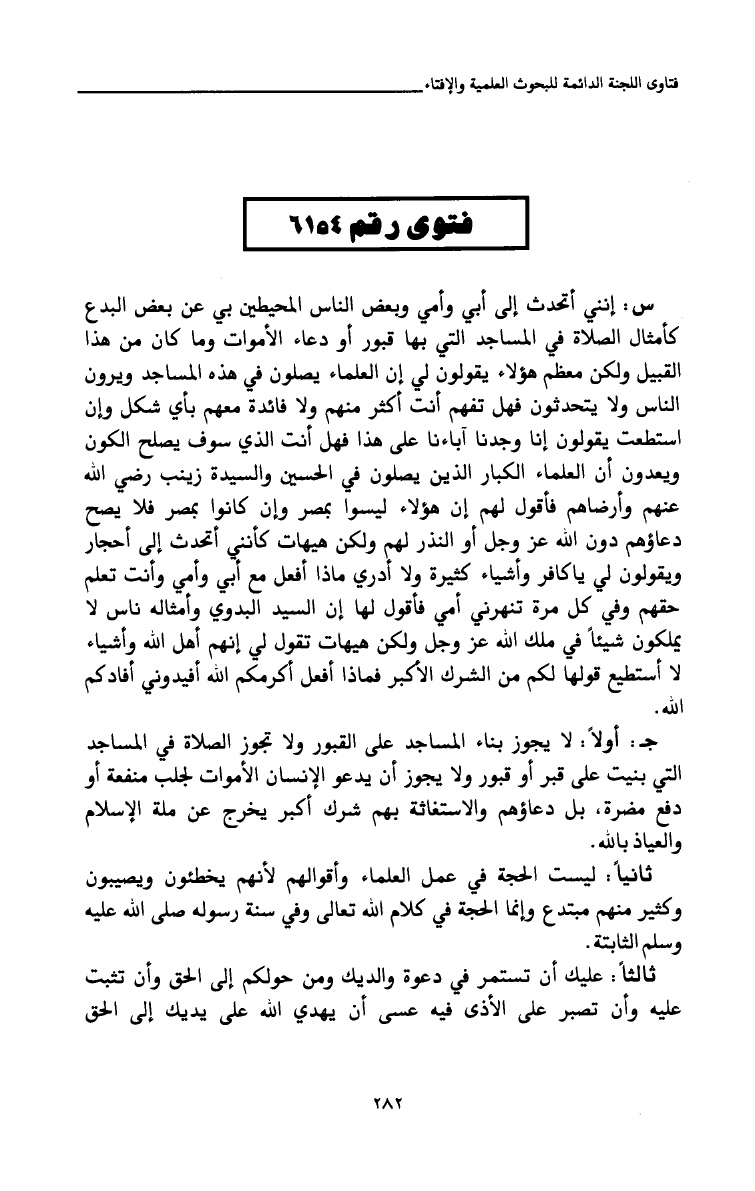 فتاوى اللجنة الدائمة للبحوث العلمية والإفتاء
فتوى رقم ٦١٥٤
س : إنني أتحدث إلى أبي وأمي وبعض الناس المحيطين بي عن بعض البدع
كأمثال الصلاة في المساجد التي بها قبور أو دعاء الأموات وما كان من هذا
القبيل ولكن معظم هؤلاء يقولون لي إن العلماء يصلون في هذه المساجد ويرون
الناس ولا يتحدثون فهل تفهم أنت أكثر منهم ولا فائدة معهم بأي شكل وإن
استطعت يقولون إنا وجدنا آباءنا على هذا فهل أنت الذي سوف يصلح الكون
ويعدون أن العلماء الكبار الذين يصلون في الحسين والسيدة زينب رضي الله
عنهم وأرضاهم فأقول لهم إن هؤلاء ليسوا بمصر وإن كانوا بمصر فلا يصح
دعاؤهم دون الله عز وجل أو النذر لهم ولكن هيهات كأنني أتحدث إلى أحجار
ويقولون لي ياكافر وأشياء كثيرة ولا أدري ماذا أفعل مع أبي وأمي وأنت تعلم
حقهم وفي كل مرة تنهرني أمي فأقول لها إن السيد البدوي وأمثاله ناس لا
يملكون شيئاً في ملك الله عز وجل ولكن هيهات تقول لي إنهم أهل الله وأشياء
لا أستطيع قولها لكم من الشرك الأكبر فماذا أفعل أكرمكم الله أفيدوني أفادكم
الله .
جـ : أولاً : لا يجوز بناء المساجد على القبور ولا تجوز الصلاة في المساجد
التي بنيت على قبر أو قبور ولا يجوز أن يدعو الإنسان الأموات لجلب منفعة أو
دفع مضرة ، بل دعاؤهم والاستغاثة بهم شرك أكبر يخرج عن ملة الإسلام
والعياذ بالله .
ثانياً : ليست الحجة في عمل العلماء وأقوالهم لأنهم يخطئون ويصيبون
وكثير منهم مبتدع وإنما الحجة في كلام الله تعالى وفي سنة رسوله صلى الله عليه
وسلم الثابتة .
ثالثاً : عليك أن تستمر في دعوة والديك ومن حولكم إلى الحق وأن تثبت
عليه وأن تصبر على الأذى فيه عسى أن يهدي الله على يديك إلى الحق
٢٨٢